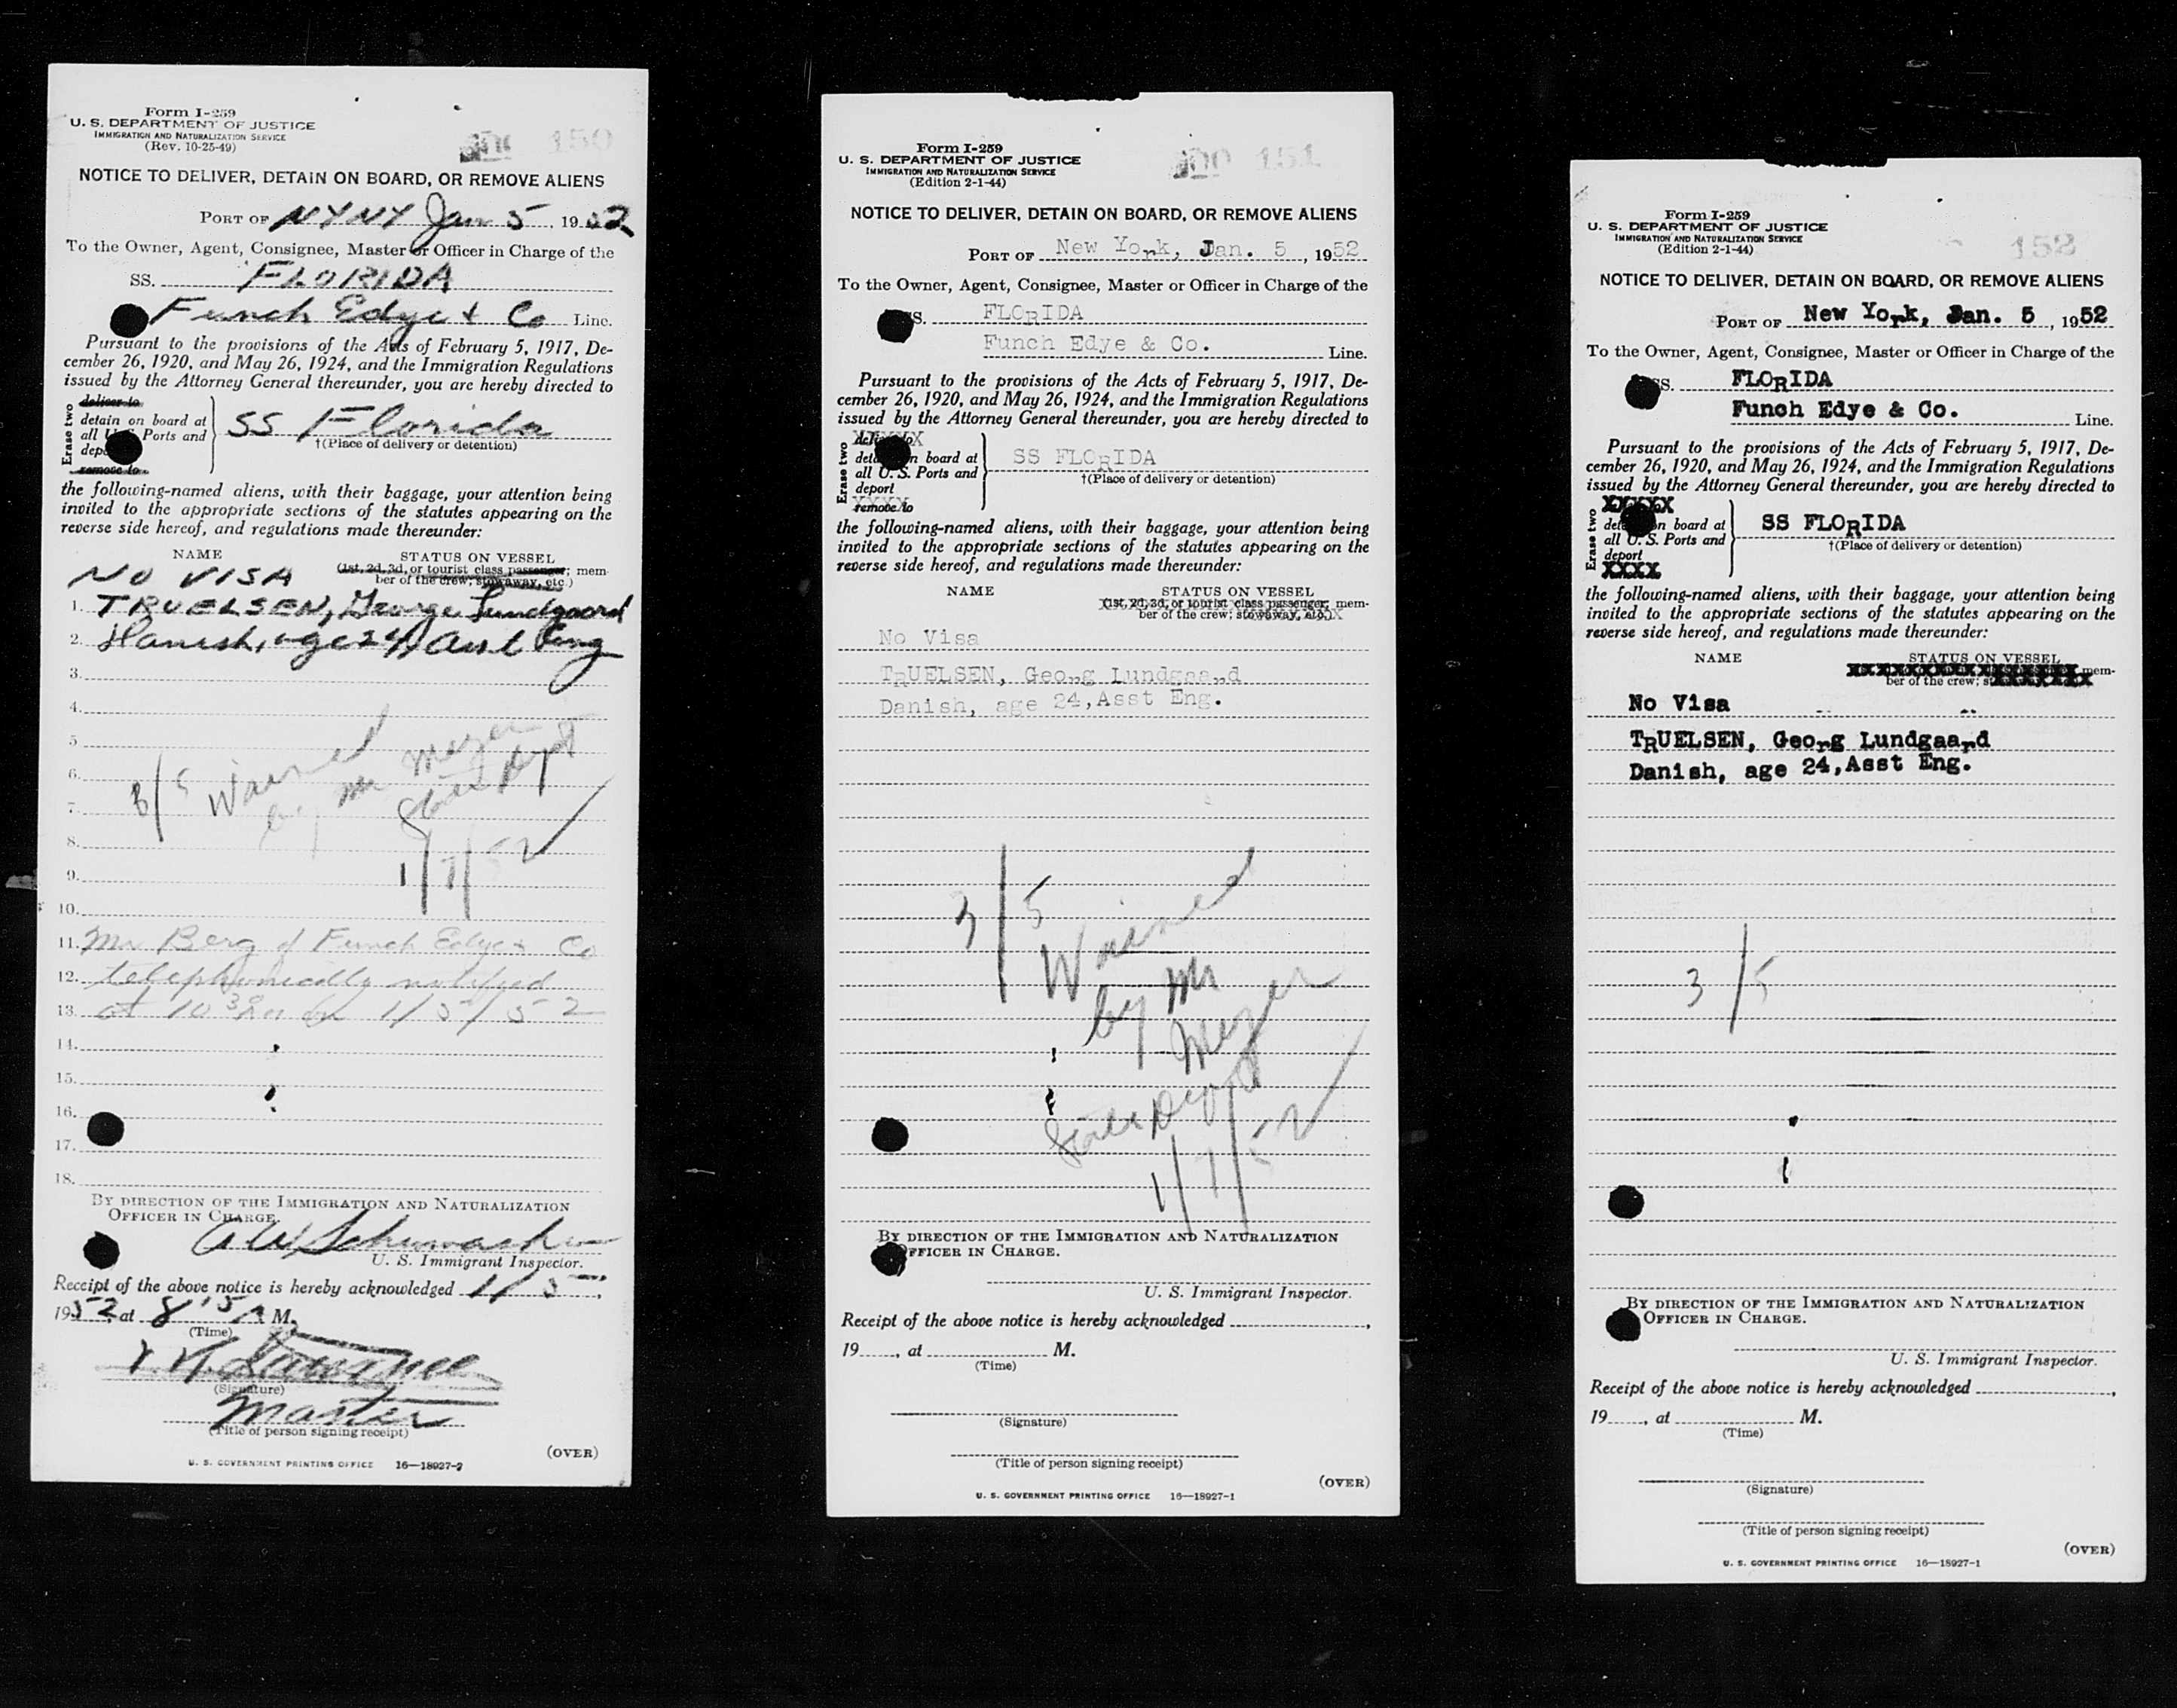 Form I-259
U. S. DEPARTMENT OF JUSTICE
IMMIGRATION AND NATURALIZATION SERVICE
(Rev. 10-25-49)
150
NOTICE TO DELIVER, DETAIN ON BOARD, OR REMOVE ALIENS
PORT OF NYNY Jan 5, 1952
To the Owner, Agent, Consignee, Master or Officer in Charge of the
SS. FLORIDA
Funch Edye & Co Line.
Pursuant to the provisions of the Acts of February 5, 1917, De-
cember 26, 1920, and May 26, 1924, and the Immigration Regulations
issued by the Attorney General thereunder, you are hereby directed to
Erase two
deliver to
detain on board at
all U. S. Ports and
deport
remove to
SS Florida
†(Place of delivery or detention)
the following-named aliens, with their baggage, your attention being
invited to the appropriate sections of the statutes appearing on the
reverse side hereof, and regulations made thereunder:
NAME STATUS ON VESSEL
(1st, 2d, 3d, or tourist class passenger; mem-
ber of the crew; stowaway, etc.)
NO VISA
1. TRUELSEN, George Lundgaard
2. Danish, age 24, Asst Eng
3.
4.
5.
6.
7.
8.
9.
10.
Waived
by Mr Mezer
State Dept
1/7/52
11. Mr Berg of Funch Edye & Co
12. telephonically notified
13. at 10 30 1/5/52
14.
15.
16.
17.
18.
BY DIRECTION OF THE IMMIGRATION AND NATURALIZATION
OFFICER IN CHARGE.
U. S. Immigrant Inspector.
Receipt of the above notice is hereby acknowledged 1/5,
1952 at 8 15 A M.
(Time)
(Signature)
Master
(Title of person signing receipt)
(OVER)
U. S. GOVERNMENT PRINTING OFFICE 16—18927-2
Form I-259
U. S. DEPARTMENT OF JUSTICE
IMMIGRATION AND NATURALIZATION SERVICE
(Edition 2-1-44)
151
NOTICE TO DELIVER, DETAIN ON BOARD, OR REMOVE ALIENS
PORT OF New York, Jan. 5, 1952
To the Owner, Agent, Consignee, Master or Officer in Charge of the
SS. FLORIDA
Funch Edye & Co. Line.
Pursuant to the provisions of the Acts of February 5, 1917, De-
cember 26, 1920, and May 26, 1924, and the Immigration Regulations
issued by the Attorney General thereunder, you are hereby directed to
Erase two
deliver to
detain on board at
all U. S. Ports and
deport
remove to
SS FLORIDA
†(Place of delivery or detention)
the following-named aliens, with their baggage, your attention being
invited to the appropriate sections of the statutes appearing on the
reverse side hereof, and regulations made thereunder:
NAME STATUS ON VESSEL
(1st, 2d, 3d, or tourist class passenger; mem-
ber of the crew; stowaway, etc.)
No Visa
TRUELSEN, Georg Lundgaard
Danish, age 24,Asst Eng.
3/5
Waived
by Mr
Mezer
State Dept
1/7/52
BY DIRECTION OF THE IMMIGRATION AND NATURALIZATION
OFFICER IN CHARGE.
U. S. Immigrant Inspector.
Receipt of the above notice is hereby acknowledged ,
19 , at M.
(Time)
(Signature)
(Title of person signing receipt)
(OVER)
U. S. GOVERNMENT PRINTING OFFICE 16—18927-1
Form I-259
U. S. DEPARTMENT OF JUSTICE
IMMIGRATION AND NATURALIZATION SERVICE
(Edition 2-1-44)
152
NOTICE TO DELIVER, DETAIN ON BOARD, OR REMOVE ALIENS
PORT OF New York, Jan. 5, 1952
To the Owner, Agent, Consignee, Master or Officer in Charge of the
SS. FLORIDA
Funch Edye & Co. Line.
Pursuant to the provisions of the Acts of February 5, 1917, De-
cember 26, 1920, and May 26, 1924, and the Immigration Regulations
issued by the Attorney General thereunder, you are hereby directed to
Erase two
XXXXX
detain on board at
all U. S. Ports and
deport
XXXX
SS FLORIDA
†(Place of delivery or detention)
the following-named aliens, with their baggage, your attention being
invited to the appropriate sections of the statutes appearing on the
reverse side hereof, and regulations made thereunder:
NAME STATUS ON VESSEL
mem-
ber of the crew;
No Visa
TRUELSEN, Georg Lundgaard
Danish, age 24,Asst Eng.
3/5
BY DIRECTION OF THE IMMIGRATION AND NATURALIZATION
OFFICER IN CHARGE.
U. S. Immigrant Inspector.
Receipt of the above notice is hereby acknowledged ,
19 , at M.
(Time)
(Signature)
(Title of person signing receipt)
(OVER)
U. S. GOVERNMENT PRINTING OFFICE 16—18927-1